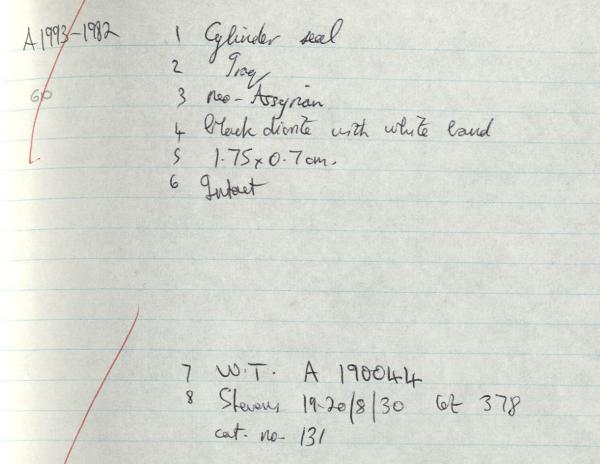 A 1993-1982 1 Cylinder seal
2 Iraq
60 3 neo-Assyrian
4 black diorite with white band
5 1.75 x 0.7cm.
6 Intact
7 W.T. A 190044
8 Stevens 19-20/8/30 lot 378
cat. no- 131